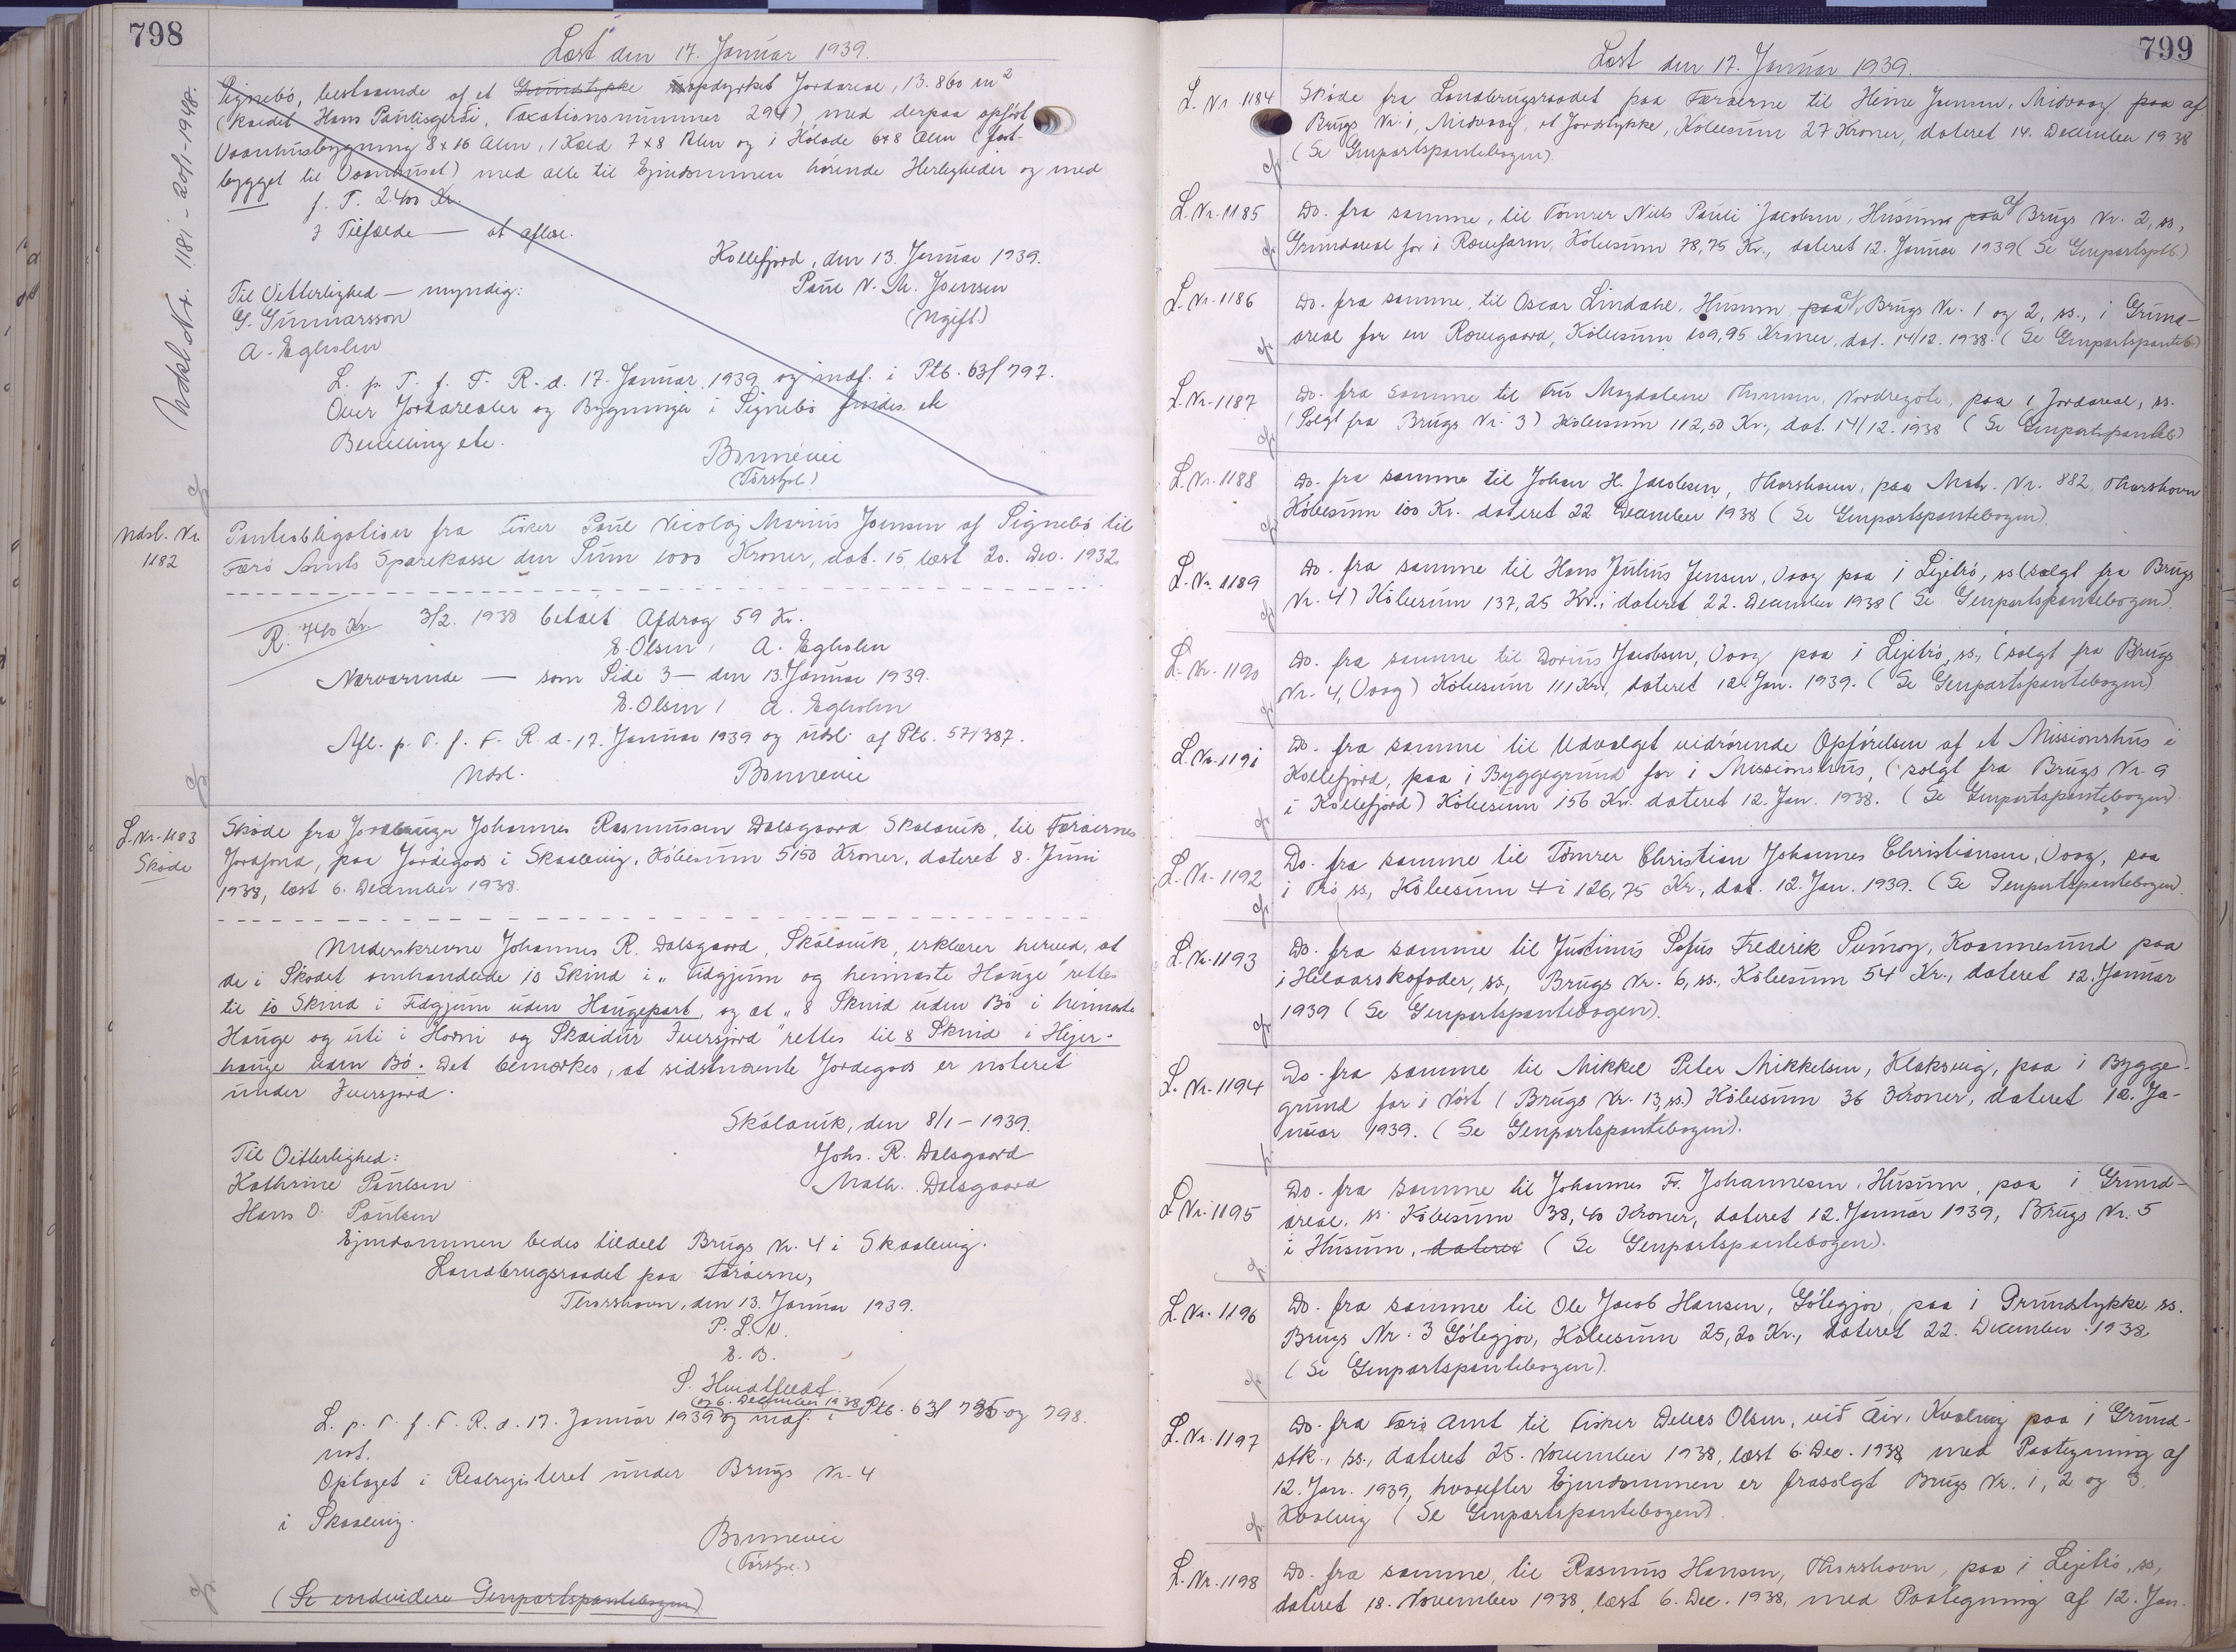 798
Læst den 17. Januar 1939.
Udsl. Nr. 1181 - 20/1-1948.
Signebö, bestaaende af et Grundstykke uopdyrket Jordareal, 13.860 m²
(kaldet Hans Paulisgerði, Taxationsnummer 294), med derpaa opført
Vaanhusbygning 8x16 Alen, 1 Kæld 7x8 Alen og 1 Hölade 6x8 Alen (fast-
bygget til Vaanhuset) med alle til Ejendommen hørende Herligheder og med
f. T. 2400 Kr.
I Tilfælde — at aflæs.
Kollefjord, den 13. Januar 1939.
Til Vitterlighed — myndig:
Poul N. M. Joensen
G. Gunnarsson
(Ugift)
A. Egholm
L. p. T. f. F. R. d. 17. Januar 1939 og indf. i Ptb. 63/797.
Over Jordarealer og Bygninger i Signebö findes ek
Benelling etc.
Bonnevie
(Förstef.)
Udsl. Nr.
1182
Panteobligation fra Fisker Poul Nicolaj Marius Joensen af Signebö til
Færö Amts Sparekasse den Sum 1000 Kroner, dat. 15, læst 20. Dec. 1932.
R. 740 Kr. 3/2. 1938 betalt Afdrag 59 Kr.
E. Olsen / A. Egholm
Nærværende — som Side 3 — den 13. Januar 1939.
E. Olsen / A. Egholm
Afl. p. T. f. F. R. d. 17. Januar 1939 og udsl. af Ptb. 57/387.
Udsl. Bonnevie
L. Nr. 1183
Skøde
Skøde fra Jordbruger Johannes Rasmussen Dalsgaard Skálavík, til Færøernes
Jordfond, paa Jordegods i Skaalevig, Købesum 5150 Kroner, dateret 8. Juni
1938, læst 6. December 1938.
Underskrevne Johannes R. Dalsgaard, Skálavík, erklærer herved, at
de i Skødet omhandlede 10 Skind i „Fidgjum og heimaste Hauge" rettes
til 10 Skind i Fidgjum uden Haugepart, og at „8 Skind uden Bö i heimaste
Hauge og úti i Horni og Skardur Juersjord" rettes til 8 Skind i Hejer-
hauge uden Bö. Det bemærkes, at sidstnævnte Jordegods er noteret
under Juersjord.
Skálavík, den 8/1 - 1939.
Til Vitterlighed:
Johs. R. Dalsgaard
Kathrine Poulsen
Math. Dalsgaard
Hans O. Poulsen
Ejendommen bedes tildelt Brugs Nr. 4 i Skaalevig.
Landbrugsraadet paa Færøerne,
Thorshavn, den 13. Januar 1939.
P. L. V.
E. B.
S. Hvidtfeldt.
og 6. December 1938
L. p. T. f. F. R. d. 17. Januar 1939 og indf. i Ptb. 63/735 og 798.
not.
Optaget i Realregisteret under Brugs Nr. 4
i Skaalevig.
Bonnevie
(Förstef.)
(Se endvidere Genpartspantebogen)
799
Læst den 17. Januar 1939.
L. Nr. 1184
Skøde fra Landbrugsraadet paa Færøerne til Heine Joensen, Midvaag, paa af
Brugs Nr. 1, Midvaag, et Jordstykke, Købesum 27 Kroner, dateret 14. December 1938
(Se Genpartspantebogen).
L. Nr. 1185
Do. fra samme, til Tömrer Niels Pauli Jacobsen, Husum paa af Brugs Nr. 2, ss,
Grundareal for 1 Rævefarm, Købesum 78,75 Kr., dateret 12. Januar 1939 (Se Genpartsptb.)
L. Nr. 1186
Do. fra samme, til Oscar Lindahl, Husum, paa af Brugs Nr. 1 og 2, ss., 1 Grund-
areal for en Rævegaard, Købesum 109,95 Kroner, dat. 14/12. 1938. (Se Genpartspanteb.)
L. Nr. 1187
Do. fra samme til Fru Magdalene Thomsen, Nordregöte, paa 1 Jordareal, ss.
(Solgt fra Brugs Nr. 3) Købesum 112,50 Kr., dat. 14/12. 1938 (Se Genpartspanteb.)
L. Nr. 1188
Do. fra samme til Johan H. Jacobsen, Thorshavn, paa Matr. Nr. 882, Thorshavn
Købesum 100 Kr. dateret 22 December 1938 (Se Genpartspantebogen).
L. Nr. 1189
Do. fra samme til Hans Julius Jensen, Vaag paa 1 Lejetrö, ss (solgt fra Brugs
Nr. 4) Købesum 137,25 Kr., dateret 22. December 1938 (Se Genpartspantebogen).
L. Nr. 1190
Do. fra samme til Dorius Jacobsen, Vaag paa 1 Lejetrö, ss., (solgt fra Brugs
Nr. 4, Vaag) Købesum 111 Kr., dateret 12. Jan. 1939. (Se Genpartspantebogen)
L. Nr. 1191
Do. fra samme til Udvalget vedrørende Opførelsen af et Missionshus i
Kollefjord, paa 1 Byggegrund for 1 Missionshus, (solgt fra Brugs Nr. 9
i Kollefjord) Købesum 156 Kr. dateret 12. Jan. 1938. (Se Genpartspantebogen)
L. Nr. 1192
Do. fra samme til Tömrer Christian Johannes Christiansen, Vaag, paa
1 Trö ss, Købesum 126,75 Kr., dat. 12. Jan. 1939. (Se Genpartspantebogen).
L. Nr. 1193
Do. fra samme til Justinus Sofus Frederik Sumoy, Kvannesund paa
1 Helaarskofoder, ss, Brugs Nr. 6, ss. Købesum 54 Kr., dateret 12. Januar
1939 (Se Genpartspantebogen).
L. Nr. 1194
Do. fra samme til Mikkel Peter Mikkelsen, Klaksvig, paa 1 Bygge-
grund for 1 Nöst (Brugs Nr. 13, ss.) Købesum 36 Kroner, dateret 12. Ja-
nuar 1939. (Se Genpartspantebogen).
L. Nr. 1195
Do. fra samme til Johannes Fr. Johannesen, Husum, paa 1 Grund-
areal, ss. Købesum 38,40 Kroner, dateret 12. Januar 1939, Brugs Nr. 5
i Husum, dateret (Se Genpartspantebogen).
L. Nr. 1196
Do. fra samme til Ole Jacob Hansen, Götegjov, paa 1 Grundstykke ss.
Brugs Nr. 3 Götegjov, Købesum 25,20 Kr., dateret 22. December 1938
(Se Genpartspantebogen).
L. Nr. 1197
Do. fra Færö Amt til Fisker Olsen, við Áir, Kvalvig paa 1 Grund-
stk., ss., dateret 25. November 1938, læst 6. Dec. 1938 med Paategning af
12. Jan. 1939, hvorefter Ejendommen er frasolgt Brugs Nr. 1, 2 og 3.
Kvalvig (Se Genpartspantebogen).
L. Nr. 1198
Do. fra samme, til Rasmus Hansen, Thorshavn, paa 1 Lejetrö, ss,
dateret 18. November 1938, læst 6. Dec. 1938, med Paategning af 12. Jan.